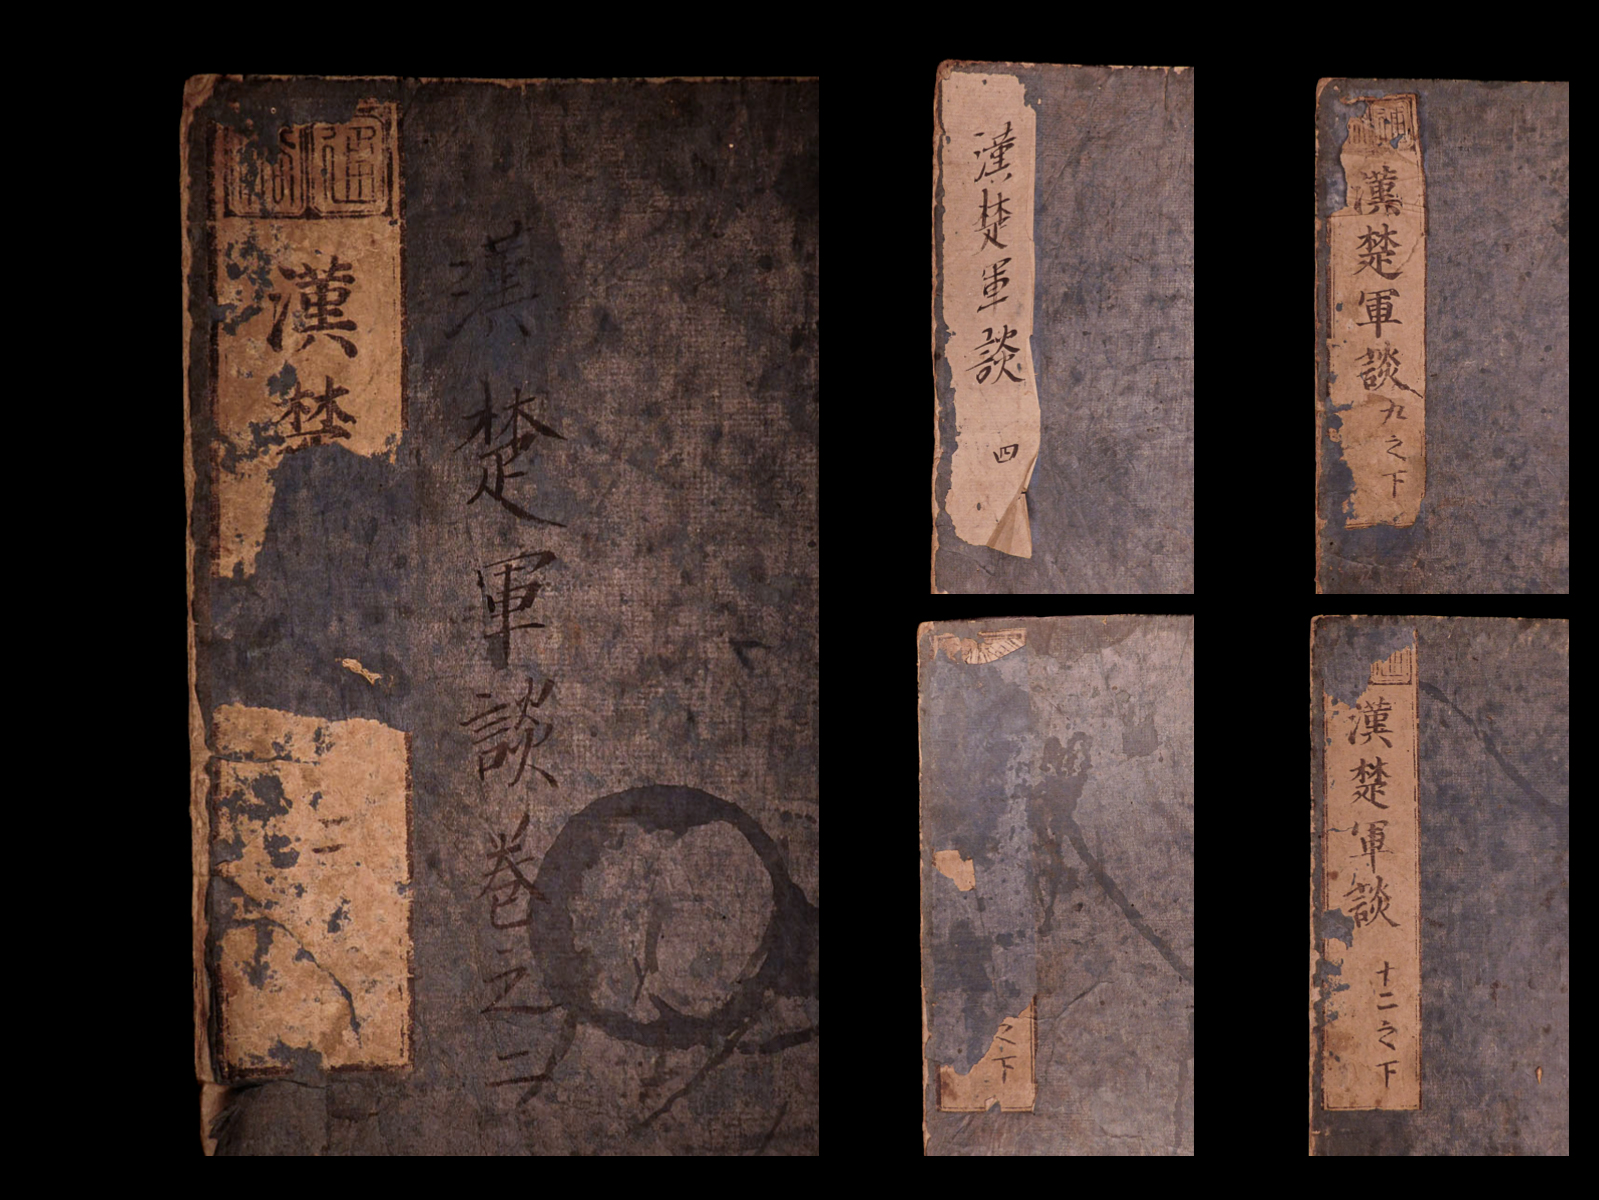 通
漢楚
二
漢楚軍談卷之二
漢楚軍談
四
通
漢楚軍談九之下
之下
漢楚軍談
十二之下